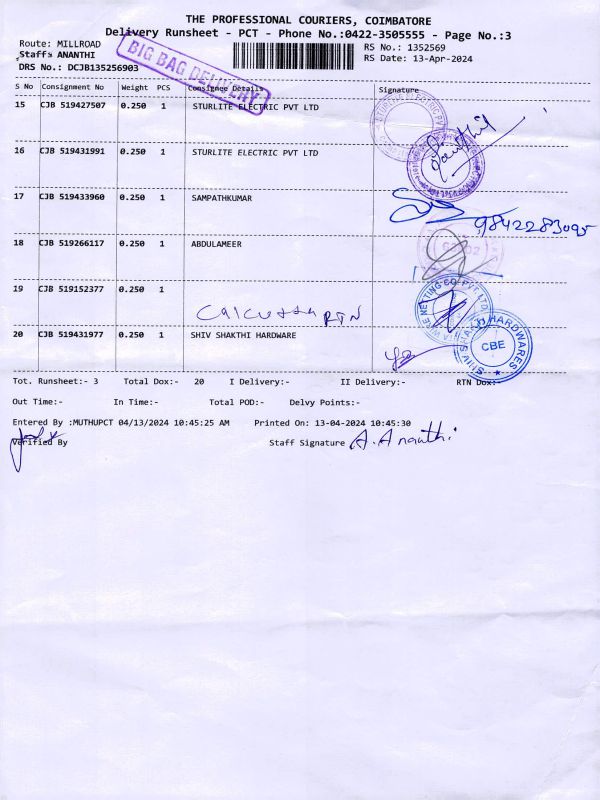 THE PROFESSIONAL COURIERS, COIMBATORE
Delivery Runsheet - PCT - Phone No.:0422-3505555 - Page No.:3
Route: MILLROAD
RS No.: 1352569
Staff: ANANTHI
RS Date: 13-Apr-2024
DRS No.: DCJB135256903
BIG BAG DELIVERY
S No Consignment No Weight PCS Consignee Details Signature
15 CJB 519427507 0.250 1 STURLITE ELECTRIC PVT LTD
16 CJB 519431991 0.250 1 STURLITE ELECTRIC PVT LTD
17 CJB 519433960 0.250 1 SAMPATHKUMAR
9842283095
18 CJB 519266117 0.250 1 ABDULAMEER
19 CJB 519152377 0.250 1
Calcutta RTN
20 CJB 519431977 0.250 1 SHIV SHAKTHI HARDWARE
SHIV SHAKTHI HARDWARES
CBE
Tot. Runsheet:- 3 Total Dox:- 20 I Delivery:- II Delivery:- RTN Dox:-
Out Time:- In Time:- Total POD:- Delvy Points:-
Entered By :MUTHUPCT 04/13/2024 10:45:25 AM Printed On: 13-04-2024 10:45:30
Verified By Staff Signature A. Ananthi